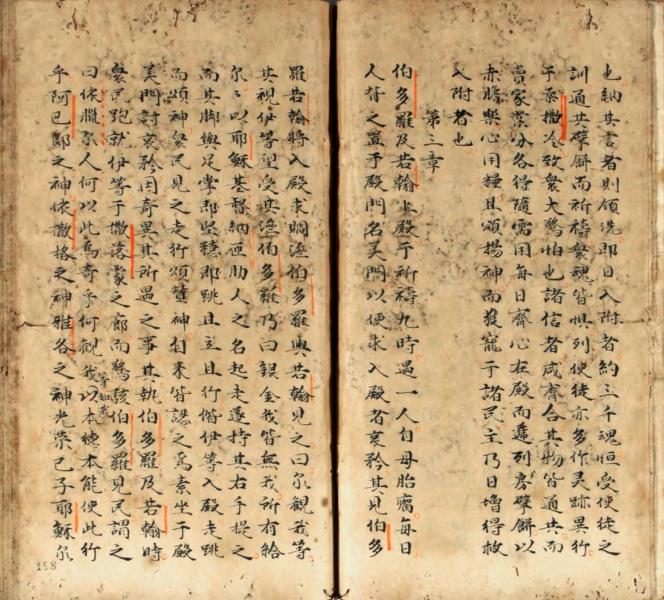 也納其言者則領洗即日入附者約三千魂恒受使徒之
訓通共擘餅而祈禱眾魂皆惧列使徒亦多作灵跡異行
于柔撒冷致眾大驚怕也諸信者咸齊合其物皆通共而
賣家業分各得隨需用每日齊心在殿而遞列房擘餅以
赤膽樂心用糧且頌揚神而獲寵于諸民主乃日增得救
入附者也
第三章
伯多羅及若翰上殿于祈禱九時遇一人自母胎腐每日
人背之置于殿門名美門以便求入殿者哀矜其見伯多
羅若翰將入殿求賙濟伯多羅與若翰見之曰尔觀我等
其視伊等望受其濟伯多羅乃曰銀金我皆無我所有給
尔以耶穌基督納匝肋人之名起走遂持其右手提之
而其脚與足掌即堅穩即跳且立且行偕伊等入殿走跳
而頌神眾民見之走行頌贊神自来皆認之為素坐于殿
美門討哀矜因奇異其所遇之事其執伯多羅及若翰時
眾民跑就伊等于撒落蒙之廊而驚駭伯多羅見民謂之
曰依臘尔人何以此為奇乎何觀我等如我以本德本能使此行
乎阿巴郎之神依撒格之神雅各之神光荣己子耶穌尔
158